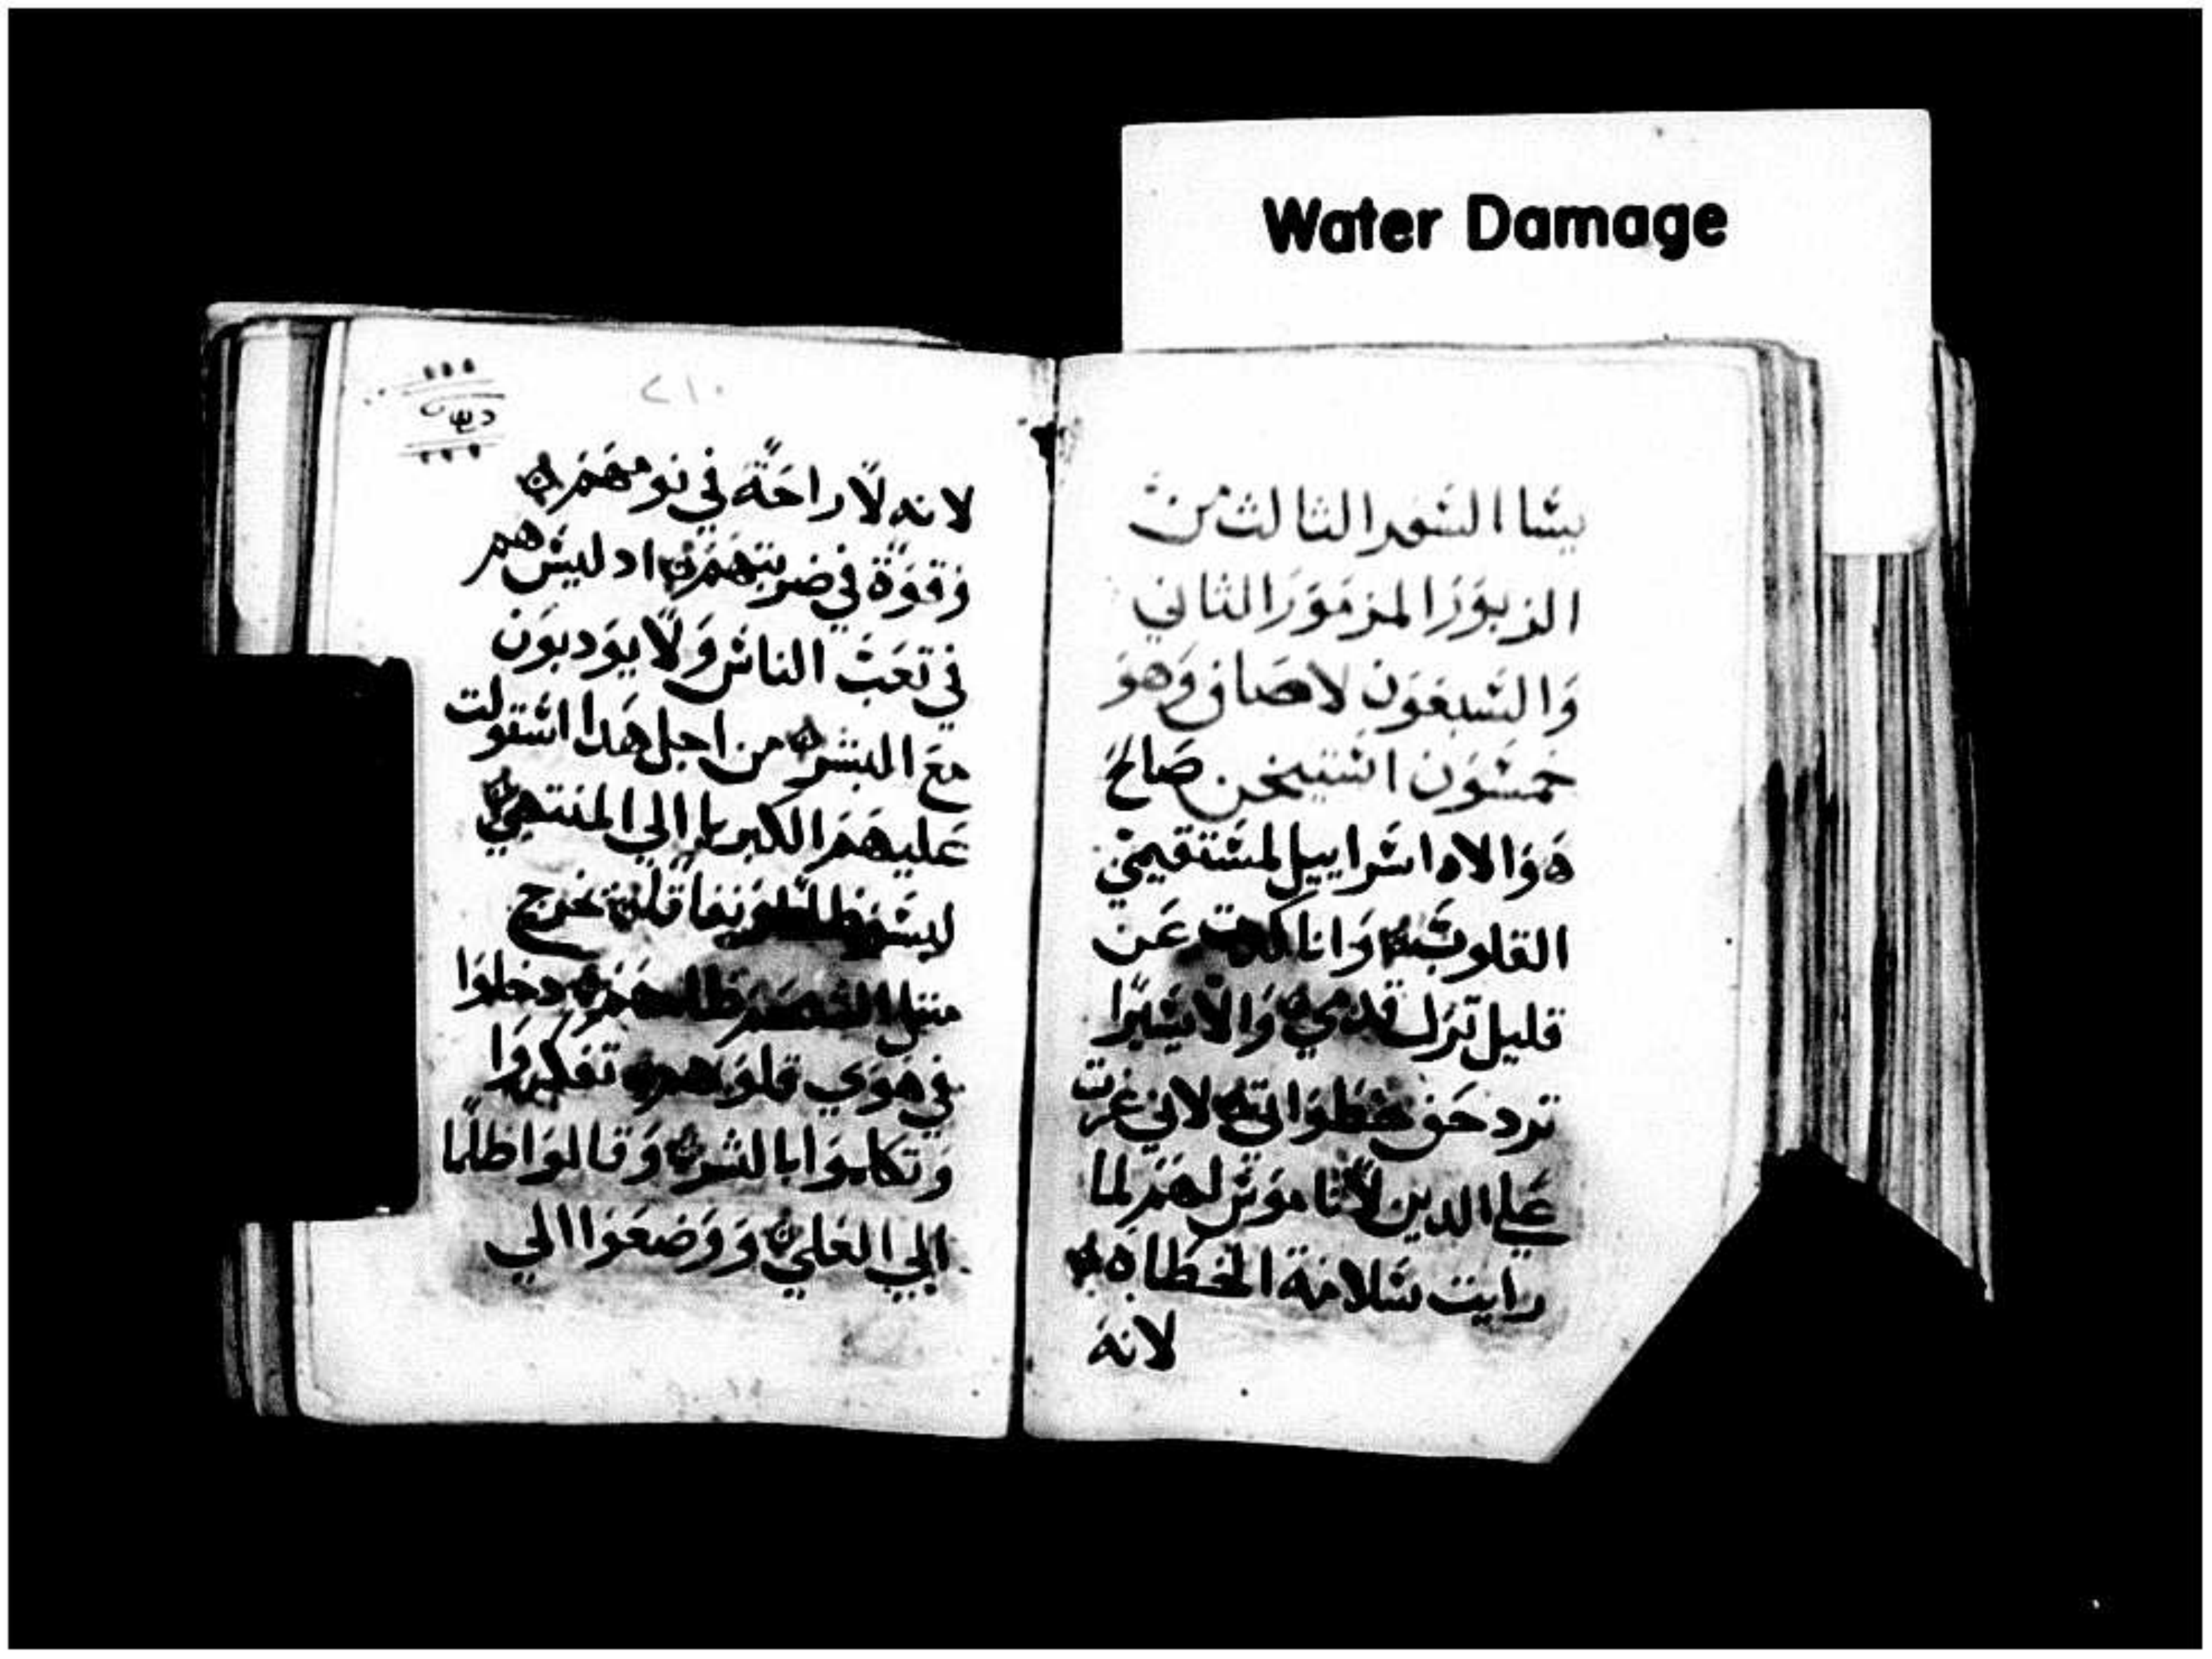 Water Damage
يشا السفر الثالث من
الزبور المزمور الثاني
والسبعون لاصاف وهو
خمسون استيخن صالح
هو الاه اسراييل لمستقيمي
القلوب وانا كدت عن
قليل تزل قدمي والا يسيرا
تزد حق خطواتي لاني غرت
علي الدين لا ناموس لهم لما
رايت سلامة الخطاه
لانه
٢١٠
لانه لا راحة في نومهم
وقوة في ضربتهم اد ليس هم
في تعب الناس ولا يودبون
مع البشر من اجل هدا استولت
عليهم الكبريا الي المنتهي
لبسو ظلما ونفاقا تخرج
مثل الشحم ظلمهم دخلوا
في هوي قلوبهم تفكروا
وتكلموا بالشر وقالوا ظلما
الي العلي ووضعوا الي